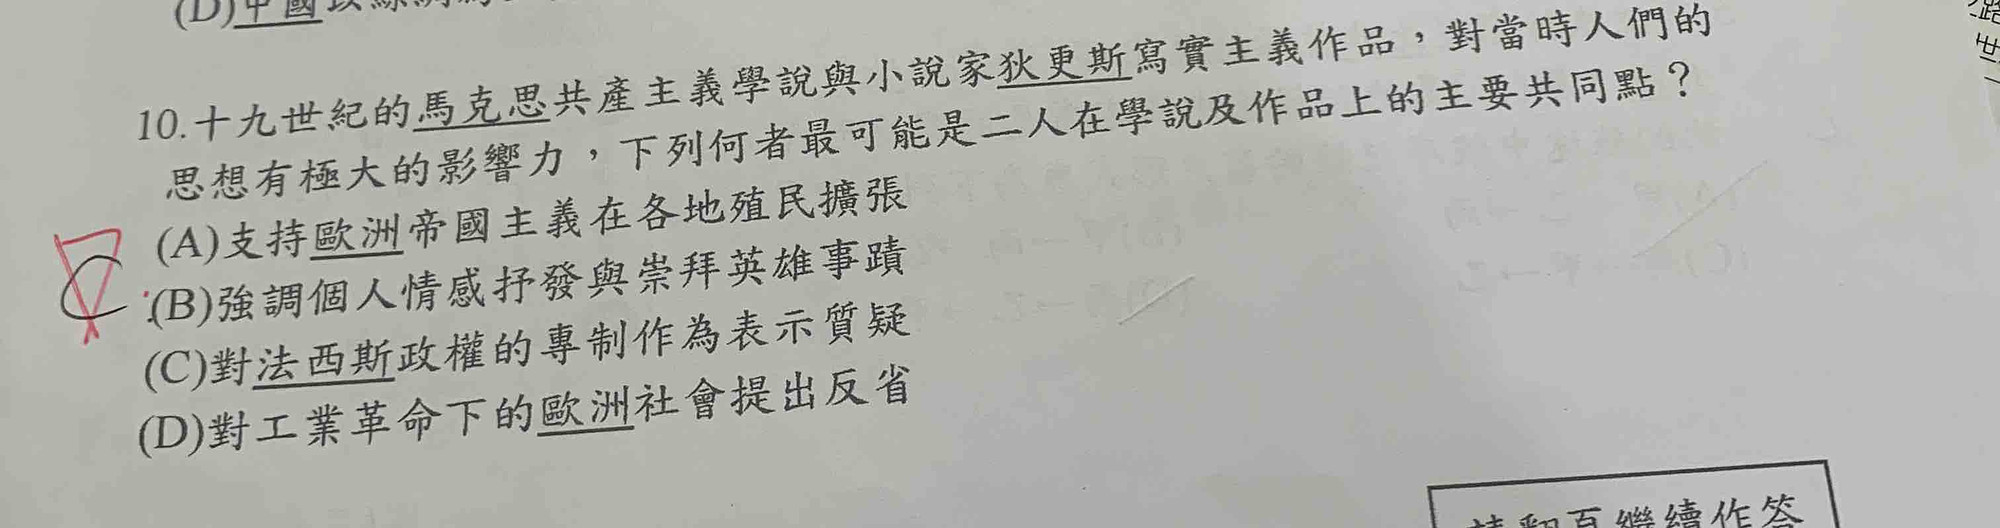 (D)中國以絲綢為
10.十九世紀的馬克思共產主義學說與小說家狄更斯寫實主義作品，對當時人們的
思想有極大的影響力，下列何者最可能是二人在學說及作品上的主要共同點？
(A)支持歐洲帝國主義在各地殖民擴張
C (B)強調個人情感抒發與崇拜英雄事蹟
(C)對法西斯政權的專制作為表示質疑
(D)對工業革命下的歐洲社會提出反省
請翻頁繼續作答